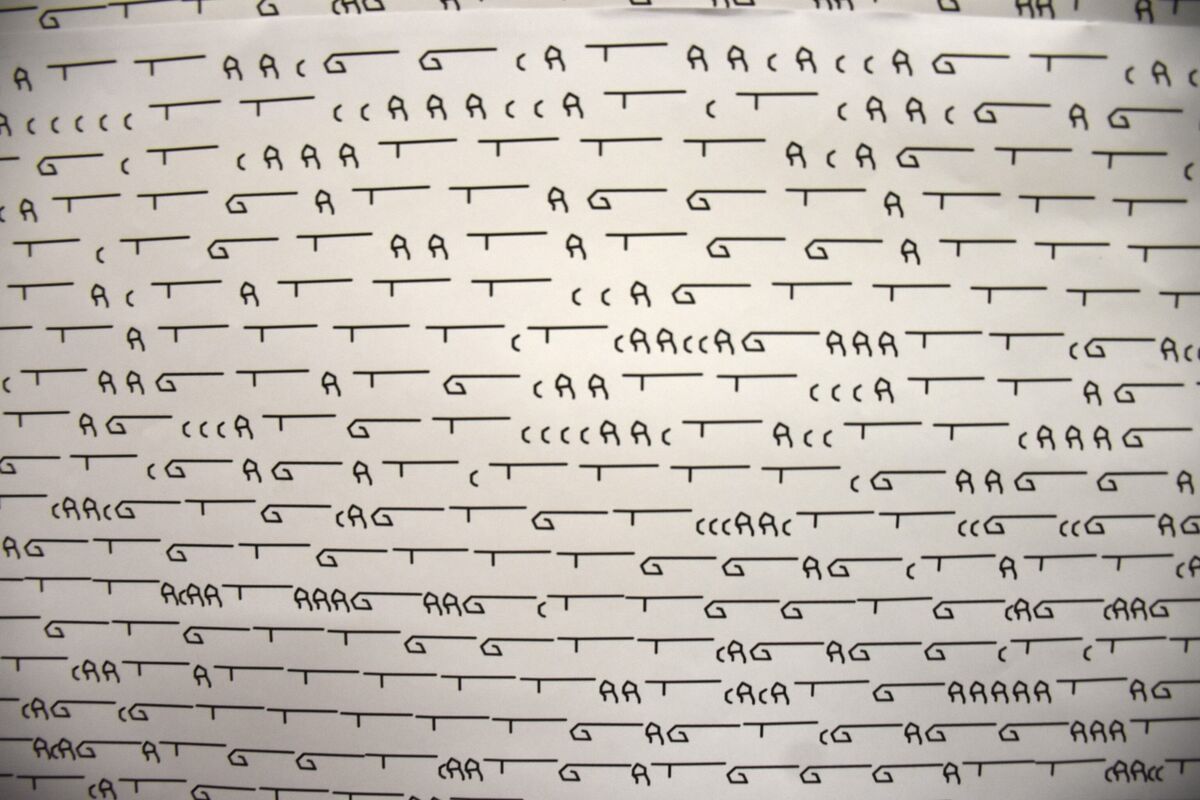 A T T A A C G G C A T A A C A C C A G T C A C
A C C C C C T T C C A A A C C A T C T C A A C G A G
G C T C A A A T T T T A C A G T T C
C A T T G A T T A G G T A T T T
T C T G T A A T A T G G A T T T
T A C T A T T T C C A G T T T T T
T A T T T T C T C A A C C A G A A A T T C G A C C
C T A A G T A T G C A A T T C C C A T T A G
T A G C C C A T G T C C C C A A C T A C C T T C A A A G
G T C G A G A T C T T T T C G A A G G A
C A A C G T G C A G T G T C C C A A C T T C C G C C G A G
A G T G T G T T T G G A G C T A T T C A
T T A C A A T A A A G A A G C T T G G T G C A G C A A G
G T G T T G G T T C A G A G G C T C T T
T C A A T A T T T T T A A T C A C A T G A A A A A T A G
C A G C G T T T T T G A G T C G A G G A A A T
A C A G A T G G T C A A T G A T G G G A T T C A A C C T
T C A T G T T